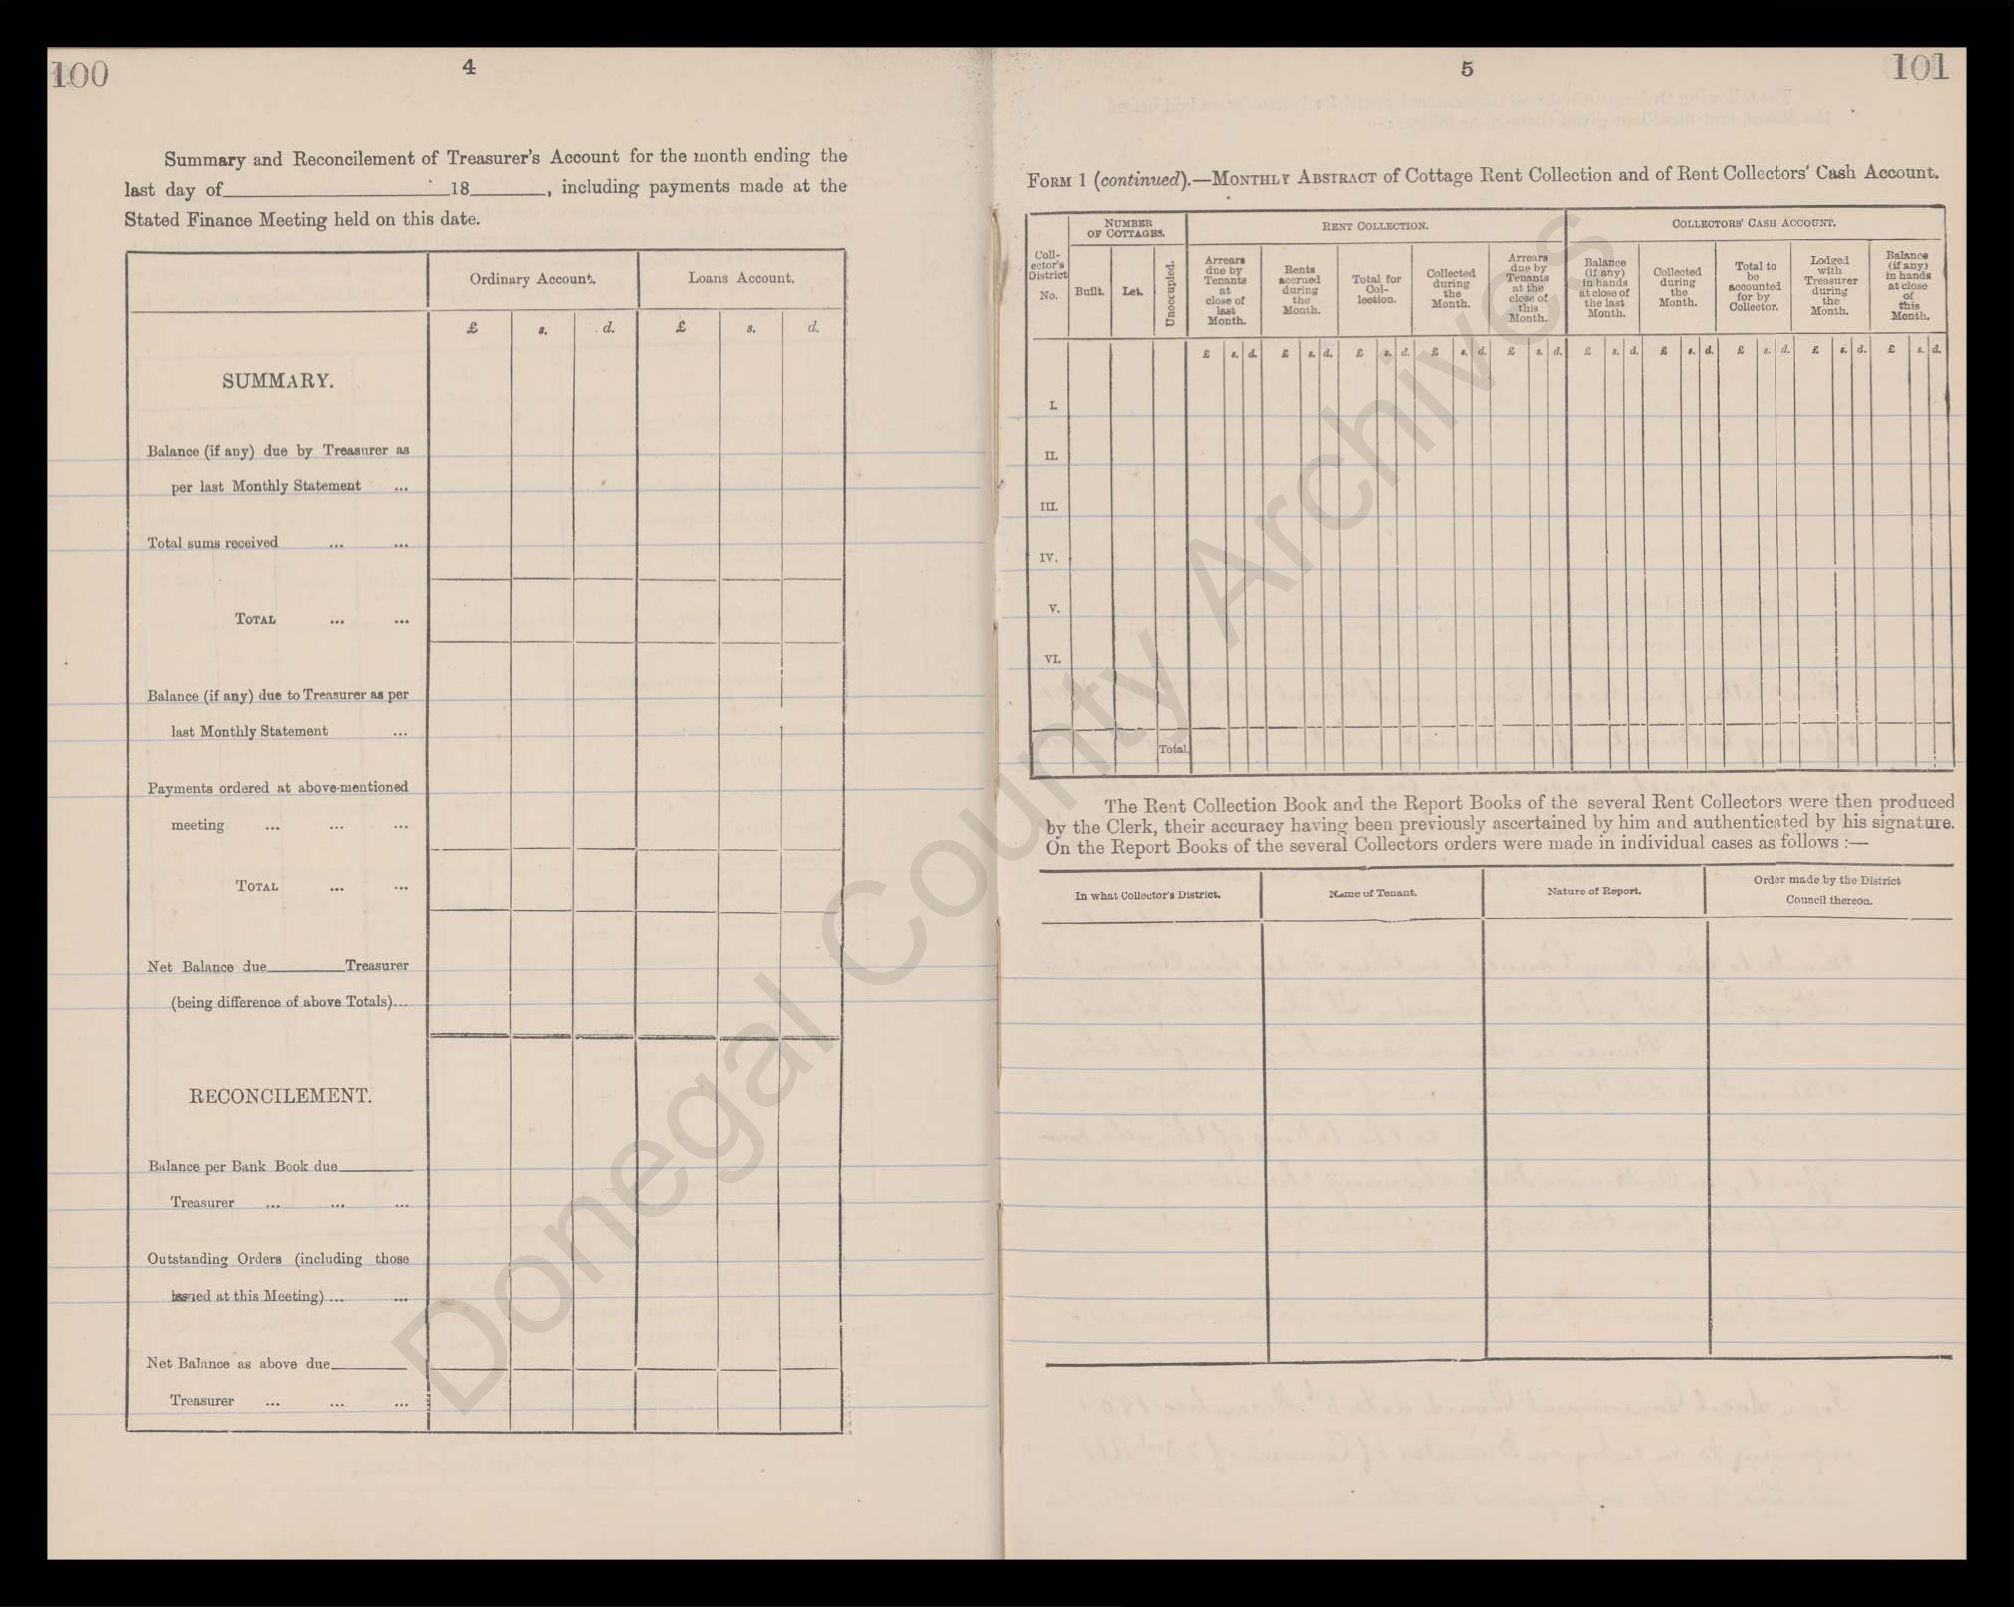 100
4
Summary and Reconcilement of Treasurer's Account for the month ending the
last day of 18 , including payments made at the
Stated Finance Meeting held on this date.
Ordinary Account. Loans Account.
£ s. d. £ s. d.
SUMMARY.
Balance (if any) due by Treasurer as
per last Monthly Statement ...
Total sums received ... ...
TOTAL ... ...
Balance (if any) due to Treasurer as per
last Monthly Statement ...
Payments ordered at above-mentioned
meeting ... ... ...
TOTAL ... ...
Net Balance due Treasurer
(being difference of above Totals)...
RECONCILEMENT.
Balance per Bank Book due
Treasurer ... ... ...
Outstanding Orders (including those
issued at this Meeting) ... ...
Net Balance as above due
Treasurer ... ... ...
5
101
FORM 1 (continued).—MONTHLY ABSTRACT of Cottage Rent Collection and of Rent Collectors' Cash Account.
Coll-
ector's
District
No.
NUMBER
OF COTTAGES.
Built.
Let.
Unoccupied.
RENT COLLECTION.
Arrears
due by
Tenants
at
close of
last
Month.
Rents
accrued
during
the
Month.
Total for
Col-
lection.
Collected
during
the
Month.
Arrears
due by
Tenants
at the
close of
this
Month.
COLLECTORS' CASH ACCOUNT.
Balance
(if any)
in hands
at close of
the last
Month.
Collected
during
the
Month.
Total to
be
accounted
for by
Collector.
Lodged
with
Treasurer
during
the
Month.
Balance
(if any)
in hands
at close
of
this
Month.
£ s. d. £ s. d. £ s. d. £ s. d. £ s. d. £ s. d. £ s. d. £ s. d. £ s. d. £ s. d.
I.
II.
III.
IV.
V.
VI.
Total
The Rent Collection Book and the Report Books of the several Rent Collectors were then produced
by the Clerk, their accuracy having been previously ascertained by him and authenticated by his signature.
On the Report Books of the several Collectors orders were made in individual cases as follows :—
In what Collector's District.
Name of Tenant.
Nature of Report.
Order made by the District
Council thereon.
Donegal County Archives